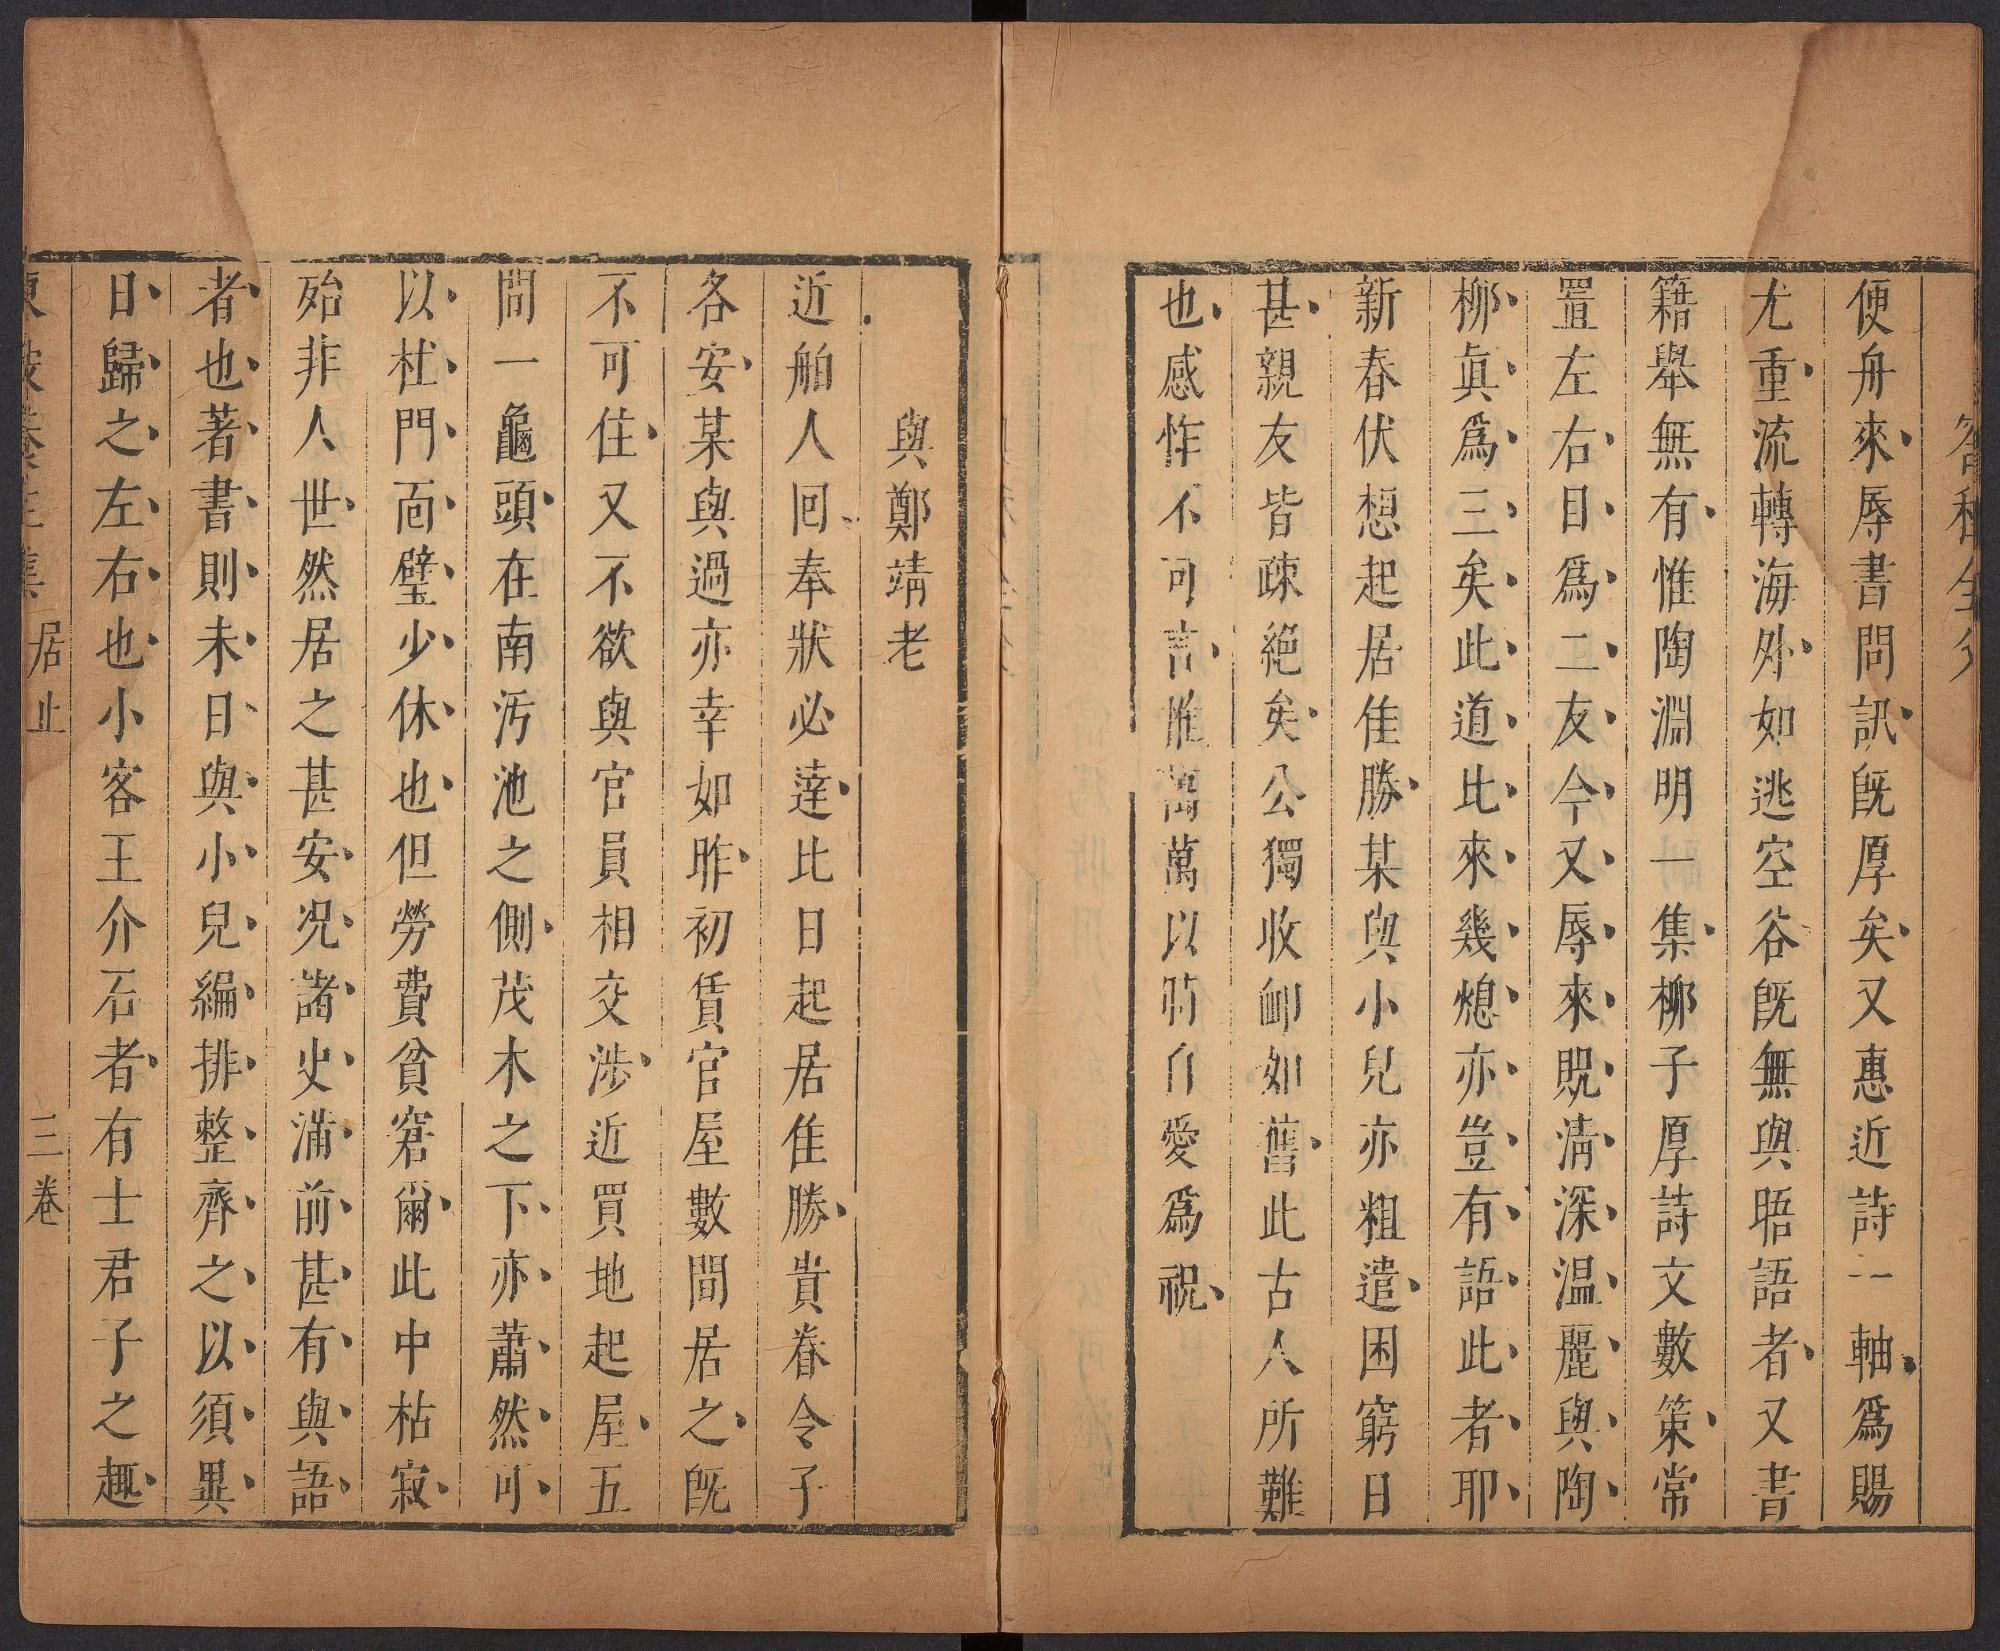 答程全父
便舟來辱書問訊旣厚矣又惠近詩一軸爲賜
尤重流轉海外如逃空谷旣無與晤語者又書
籍舉無有惟陶淵明一集柳子厚詩文數策常
置左右目爲二友今又辱來貺淸深温麗與陶
柳眞爲三矣此道比來幾熄亦豈有語此者耶
新春伏想起居佳勝某與小兒亦粗遣困窮日
甚親友皆疎絕矣公獨收卹如舊此古人所難
也感怍不可言惟萬萬以時自愛爲祝
與鄭靖老
近舶人回奉狀必達比日起居佳勝貴眷令子
各安某與過亦幸如昨初賃官屋數間居之旣
不可住又不欲與官員相交涉近買地起屋五
間一龜頭在南汚池之側茂木之下亦蕭然可
以杜門面壁少休也但勞費貧窘爾此中枯寂
殆非人世然居之甚安况諸史滿前甚有與語
者也著書則未日與小兒編排整齊之以須異
日歸之左右也小客王介石者有士君子之趣
東坡養生集 居止 三卷